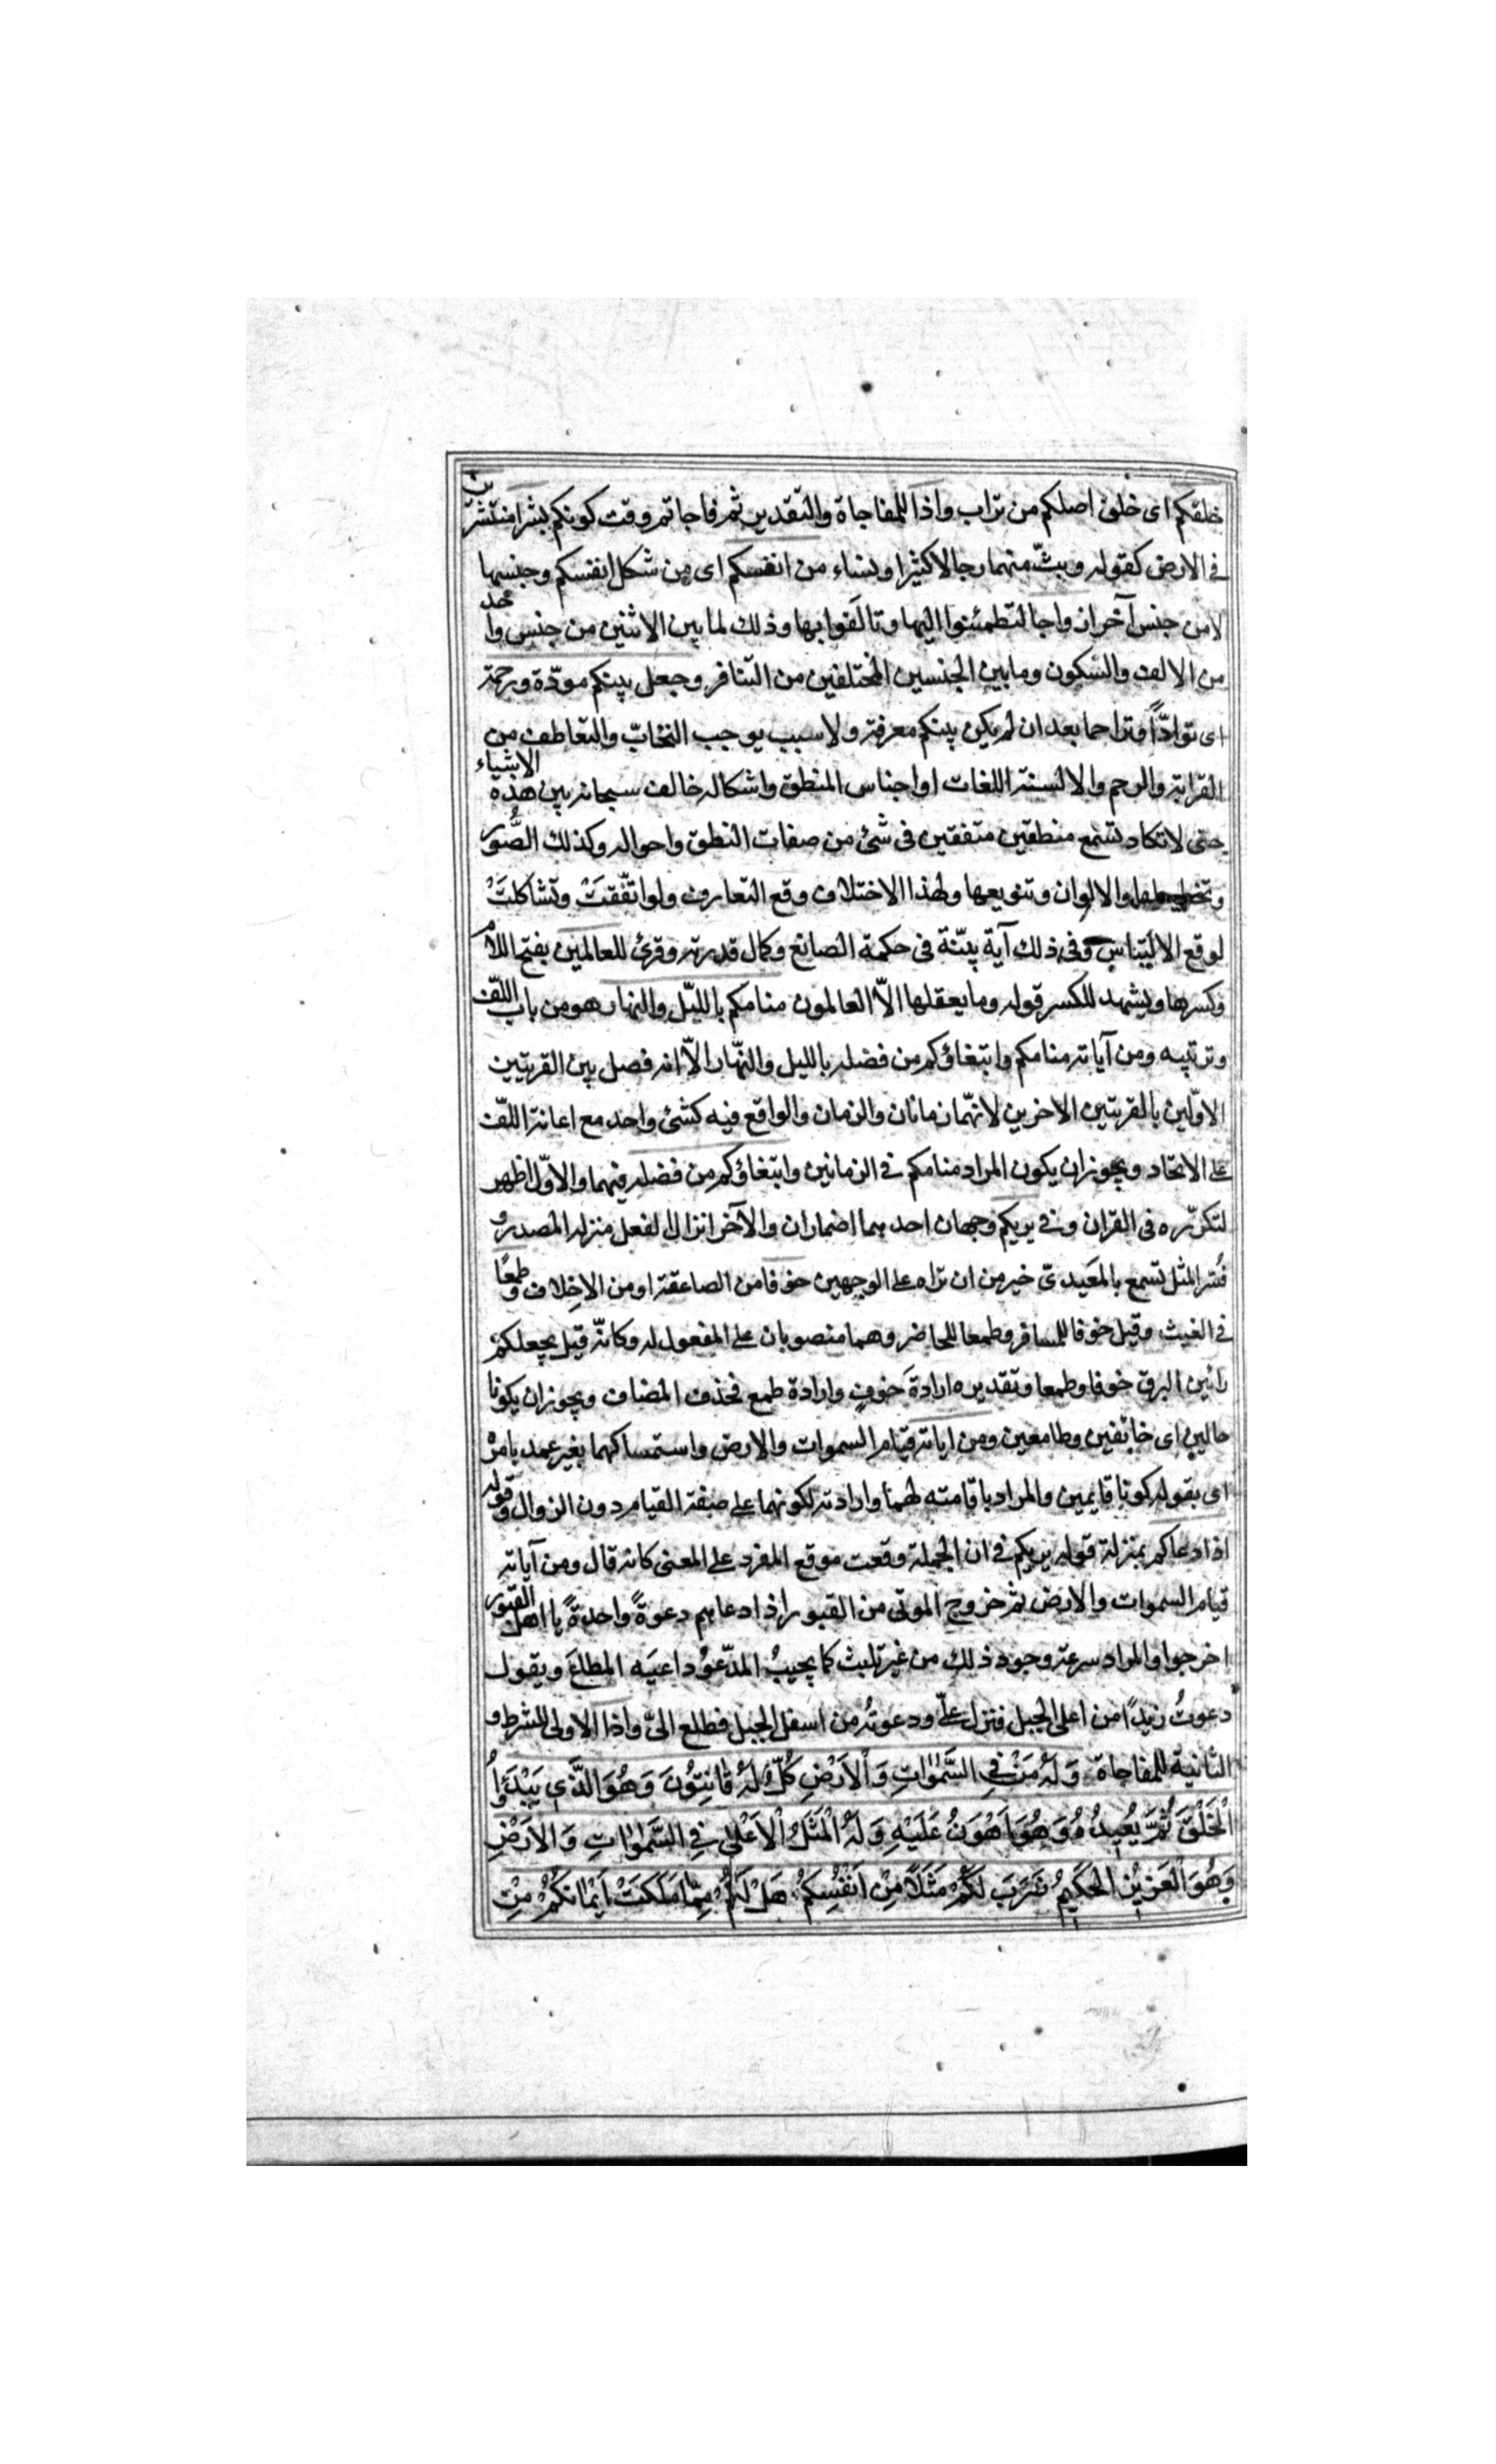 خلقكم اى خلق اصلكم من تراب واذا للمفاجاة والتقدير ثم فاجاتم وقت كونكم بشرا منتشرين
فى الارض كقوله وبثّ منهما رجالا كثيرا ونساء من انفسكم اى من شكل انفسكم وجنسها
لا من جنس آخر ازواجا لتطمئنوا اليها وتالفوا بها وذلك لما بين الاثنين من جنس واحد
من الالف والسّكون وما بين الجنسين المختلفين من التنافر وجعل بينكم مودّة ورحمة
اى توادّا وتراحما بعد ان لم يكن بينكم معرفة ولا سبب يوجب التحابّ والتعاطف من
القرابة والرحم والالسنة اللغات او اجناس المنطق واشكاله خالف سبحانه بين هذه الاشياء
حتى لا تكاد تسمع منطقين متفقين فى شئ من صفات النطق واحواله وكذلك الصُّور
والالوان وتنويعها ولهذا الاختلاف وقع التعارف ولو اتّفقتْ وتشاكلتْ
لوقع الالتباس وفى ذلك آية بيّنة فى حكمة الصانع وكمال قدرته وقرئ للعالمين بفتح اللام
وكسرها ويشهد للكسر قوله وما يعقلها الّا العالمون منامكم باللّيل والنهار هو من باب اللّف
وترتيبه ومن آياته منامكم وابتغاؤكم من فضله بالليل والنّهار الّا انه فصل بين القرينين
الاوّلين بالقرينين الاخرين لانّهما زمانان والزمان والواقع فيه كشئ واحد مع اعانة اللّف
على الاتحاد ويجوز ان يكون المراد منامكم فى الزمانين وابتغاؤكم من فضله فيهما والاوّل اظهر
لتكرّره فى القران وفى يريكم وجهان احدهما اضمار ان والآخر انزال الفعل منزلة المصدر و
فُسّر المثل تسمع بالمعيدىّ خير من ان تراه على الوجهين خوفا من الصاعقة او من الاخلاف وطمعًا
فى الغيث وقيل خوفا للمسافر وطمعا للحاضر وهما منصوبان على المفعول له وكانّه قيل يجعلكم
رائين البرق خوفا وطمعا وتقديره ارادةَ خوفٍ وارادة طمع فحذف المضاف ويجوز ان يكونا
حالين اى خائفين وطامعين ومن اياته قيام السموات والارض واستمساكهما بغير عمد بامره
اى بقوله كونا قايمين والمراد باقامته لهما وارادته لكونهما على صفة القيام دون الزوال وقوله
اذا دعاكم بمنزلة قوله يريكم فى ان الجملة وقعت موقع المفرد على المعنى كانه قال ومن آياته
قيام السموات والارض ثم خروج الموتى من القبور اذا دعاهم دعوةً واحدةً يا اهل القبور
اخرجوا والمراد سرعة وجود ذلك من غير تلبث كما يجيبُ المدّعوُ داعيَه المطاعَ ويقول
دعوتُ زيدًا من اعلى الجبل فنزل علىّ ودعوتُه من اسفل الجبل فطلع الىّ واذا الاولى للشرط و
الثانية للمفاجاة وَلَهُ مَنْ فِي السَّمٰوٰاتِ وَالْاَرْضِ كُلٌّ لَهُ قٰانِتُونَ وَهُوَ الَّذي يَبْدَؤُا
الْخَلْقَ ثُمَّ يُعيدُهُ وَهُوَ اَهْوَنُ عَلَيْهِ وَلَهُ الْمَثَلُ الْاَعْلىٰ فِي السَّمٰوٰاتِ وَالْاَرْضِ
وَهُوَ الْعَزيزُ الْحَكيمُ ضَرَبَ لَكُمْ مَثَلًا مِنْ اَنْفُسِكُمْ هَلْ لَكُمْ مِمّٰا مَلَكَتْ اَيْمٰانُكُمْ مِنْ